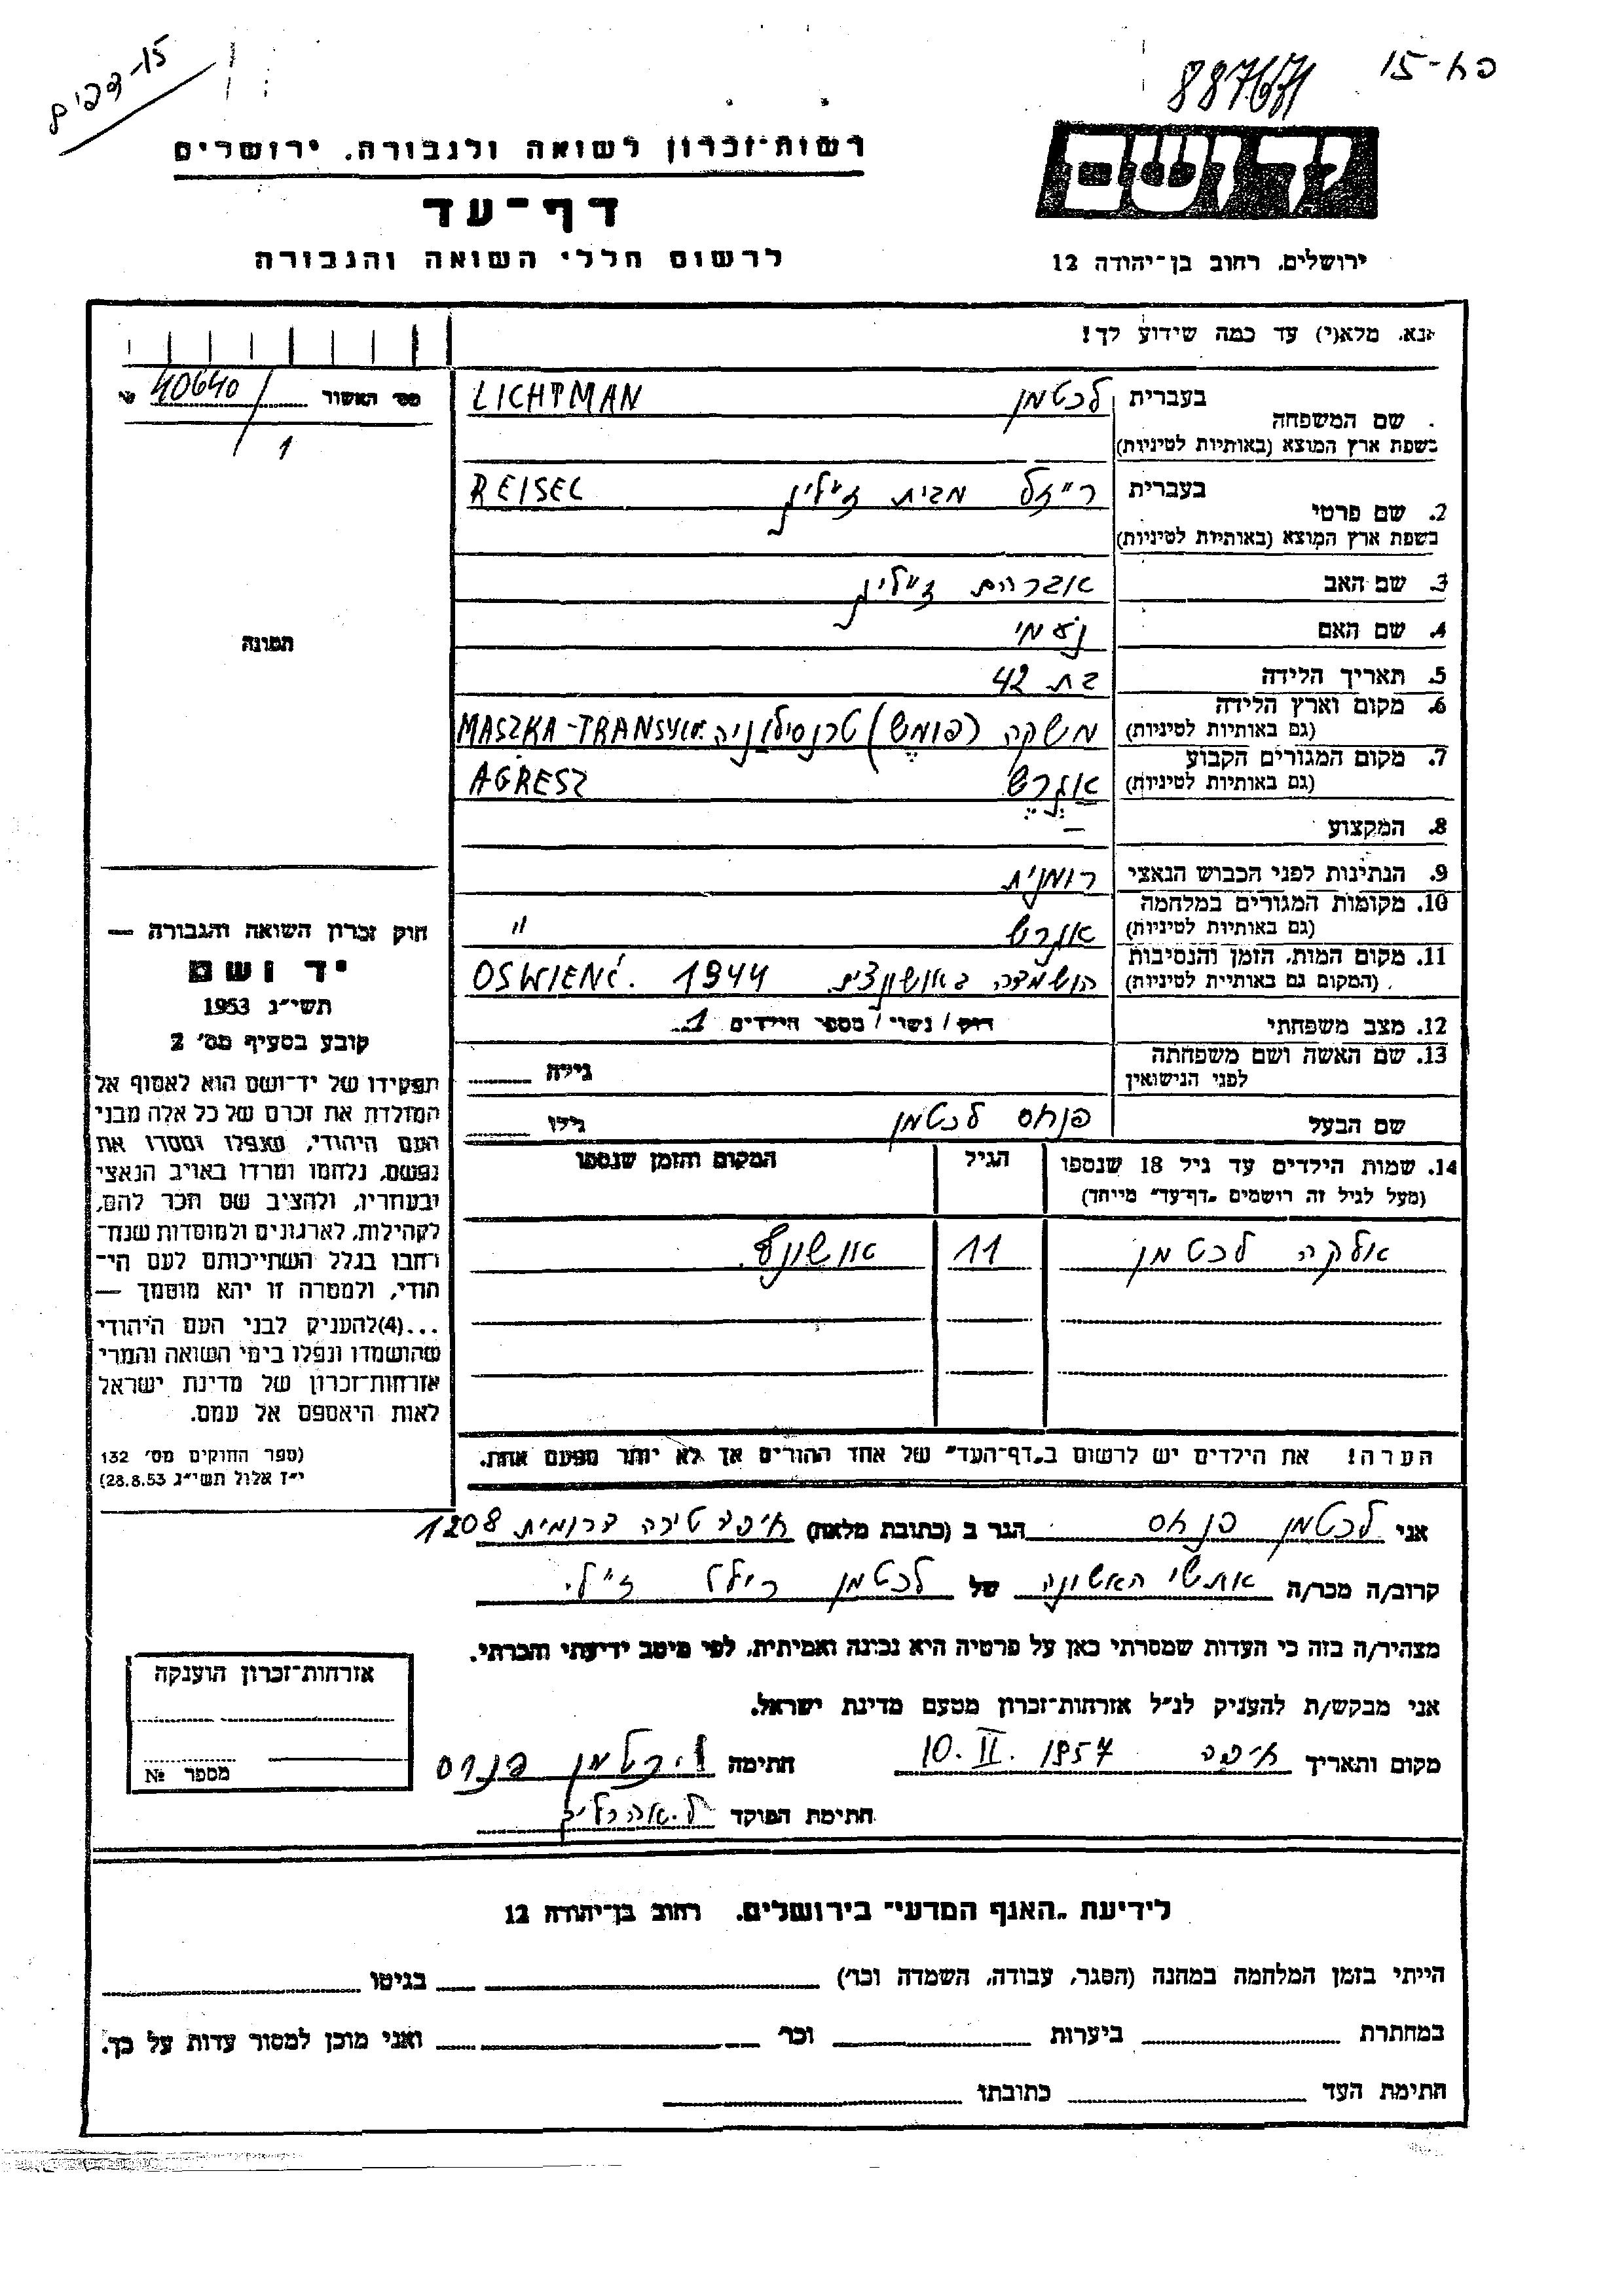 15-דפים
887671
רשות-זכרון לשואה ולגבורה. ירושלים
דף-עד
לרשום חללי השואה והגבורה
יד ושם
ירושלים. רחוב בן-יהודה 12
נא. מלא(י) עד כמה שידוע לך!
מס׳ האשור 40640 №
1
בעברית לכטמן LICHTMAN
שם המשפחה
בשפת ארץ המוצא (באותיות לטיניות)
בעברית רייזל מבית REISEL
2. שם פרטי
בשפת ארץ המוצא (באותיות לטיניות)
3. שם האב אברהם
4. שם האם נעמי
5. תאריך הלידה בת 42
6. מקום וארץ הלידה משקה טרנסילווניה MASZKA-TRANSYLV.
(גם באותיות לטיניות)
7. מקום המגורים הקבוע אגרש AGRESZ
(גם באותיות לטיניות)
8. המקצוע —
9. הנתינות לפני הכבוש הנאצי רומנית
10. מקומות המגורים במלחמה אגרש "
(גם באותיות לטיניות)
11. מקום המות, הזמן והנסיבות הושמדה 1944 OSWIENĆ.
(המקום גם באותיות לטיניות)
12. מצב משפחתי רוק / נשוי / מספר הילדים 1
13. שם האשה ושם משפחתה גילה
לפני הנישואין
שם הבעל פנחס לכטמן גילו
14. שמות הילדים עד גיל 18 שנספו הגיל המקום והזמן שנספו
(מעל לגיל זה רושמים „דף-עד" מייחד)
אלקה לכטמן 11
הערה! את הילדים יש לרשום ב„דף-העד" של אחד ההורים אך לא יותר מפעם אחת.
התמונה
חוק זכרון השואה והגבורה —
יד ושם
תשי״ג 1953
קובע בסעיף מס׳ 2
תפקידו של יד-ושם הוא לאסוף אל
המולדת את זכרם של כל אלה מבני
העם היהודי, שנפלו ומסרו את
נפשם, נלחמו ומרדו באויב הנאצי
ובעוזריו, ולהציב שם וזכר להם,
לקהילות, לארגונים ולמוסדות שנח-
רבו בגלל השתייכותם לעם הי-
הודי, ולמטרה זו יהא מוסמך —
...(4)להעניק לבני העם היהודי
שהושמדו ונפלו בימי השואה והמרי
אזרחות-זכרון של מדינת ישראל
לאות היאספם אל עמם.
(ספר החוקים מס׳ 132
י״ז אלול תשי״ג 28.8.53)
אני לכטמן פנחס הגר ב (כתובת מלאה) חיפה טירה דרומית 1208
קרוב/ה מכר/ה אשתי הראשונה של לכטמן רייזל ז״ל
מצהיר/ה בזה כי העדות שמסרתי כאן על פרטיה היא נכונה ואמיתית, לפי מיטב ידיעתי והכרתי.
אני מבקש/ת להעניק לנ״ל אזרחות-זכרון מטעם מדינת ישראל.
מקום ותאריך חיפה 10. II. 1957 חתימה ליכטמן פנחס
חתימת הפוקד
אזרחות-זכרון הוענקה
מספר №
לידיעת „האגף המדעי" בירושלים. רחוב בן-יהודה 12
הייתי בזמן המלחמה במחנה (הסגר, עבודה, השמדה וכו׳) בגיטו
במחתרת ביערות וכו׳ ואני מוכן למסור עדות על כך.
חתימת העד כתובתו